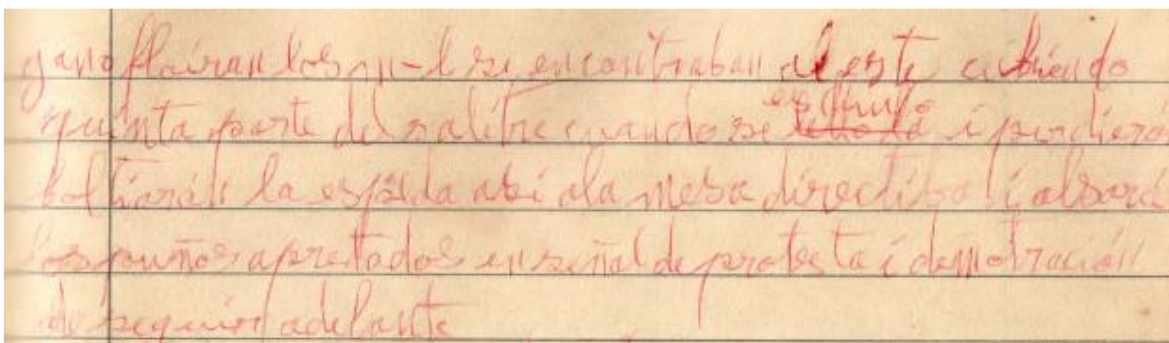 gano flairan los nn-l se encontraban al este cubriendo
quinta parte del salitre cuando se escrutó i perdieró
boltiarán la espada asi ala mesa directiba i alsará
los puños apretados en señal de protesta i demotración
de seguir adelante